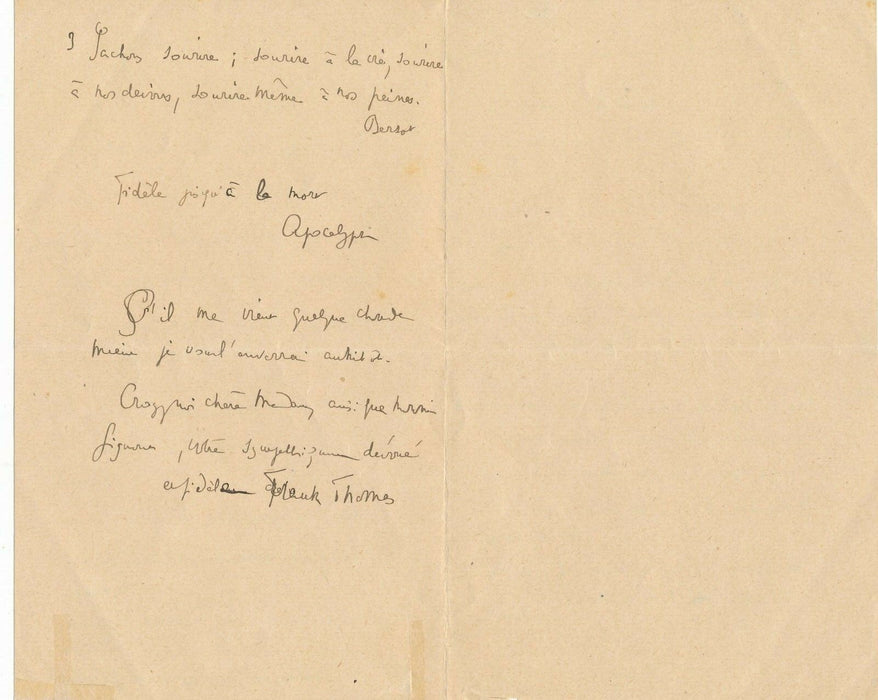 Sachons sourire ; sourire à la vie, sourire
à nos devoirs, sourire même à nos peines.
Bersot
Fidèle jusqu'à la mort
Apocalypse
S'il me vient quelque chose de
mieux je vous l'enverrai aussitôt.
Croyez moi chère Madame, ainsi que
, votre sympathiquement dévoué
et fidèle Frank Thomas